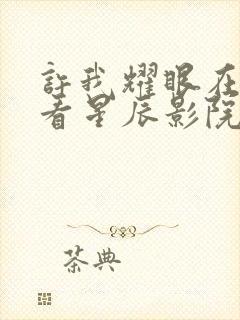 許我耀眼在
看星辰影院
茶典